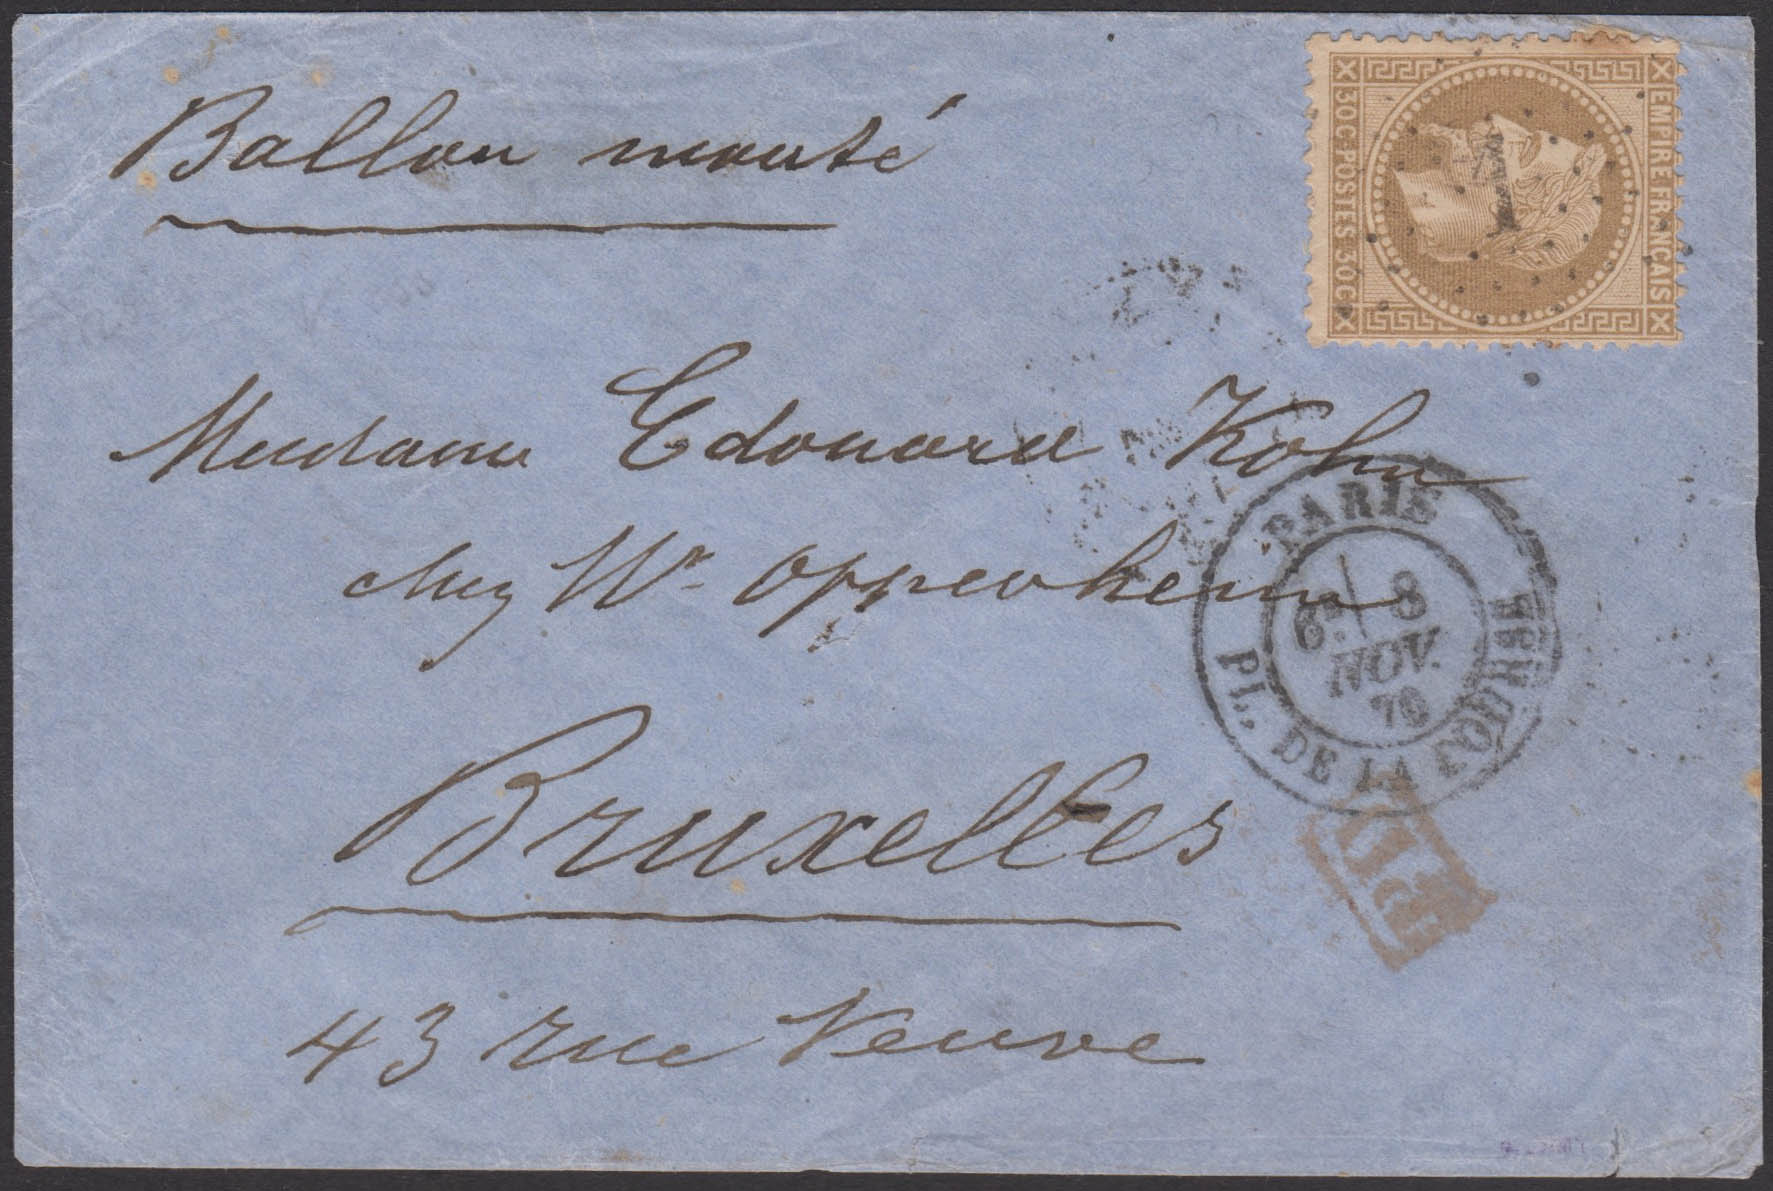 Ballon monté
EMPIRE FRANCAIS
30 C POSTES 30 C
1
Madame Edouard Kohn
chez Mr Oppenheim
PARIS
6E 8
NOV.
70
PL. DE LA BOURSE
Bruxelles
PD
43 rue Neuve